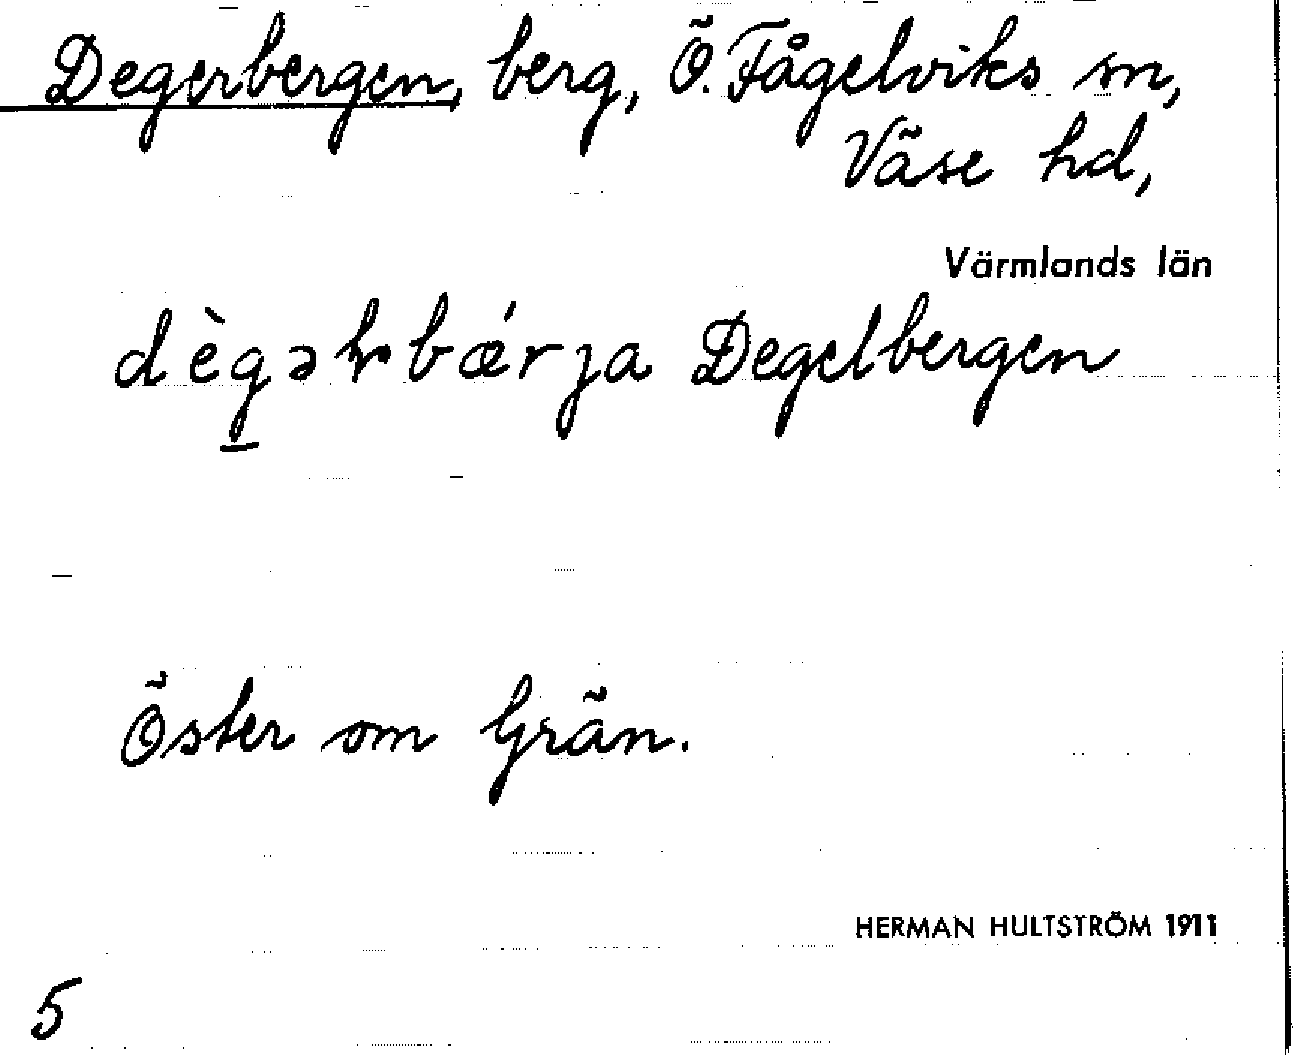 Degerbergen, berg, Ö. Fågelviks sn,
Väse hd,
Värmlands län
Degelbergen
Öster om Grän.
HERMAN HULTSTRÖM 1911
5